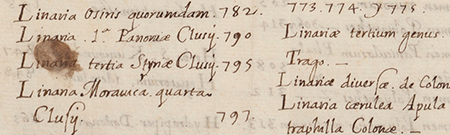 Linaria Osiris quorumdam. 782.
Linaria. 1ª Panoniæ Clusij. 790
Linaria tertia Styriæ Clusij. 795
Linaria Moravica. quarta
Clusij. 797.
773. 774. y 775.
Linariæ tertium genus.
Trago. —
Linariæ diversæ. de Colon
Linaria cærulea Apula
Colonæ. —